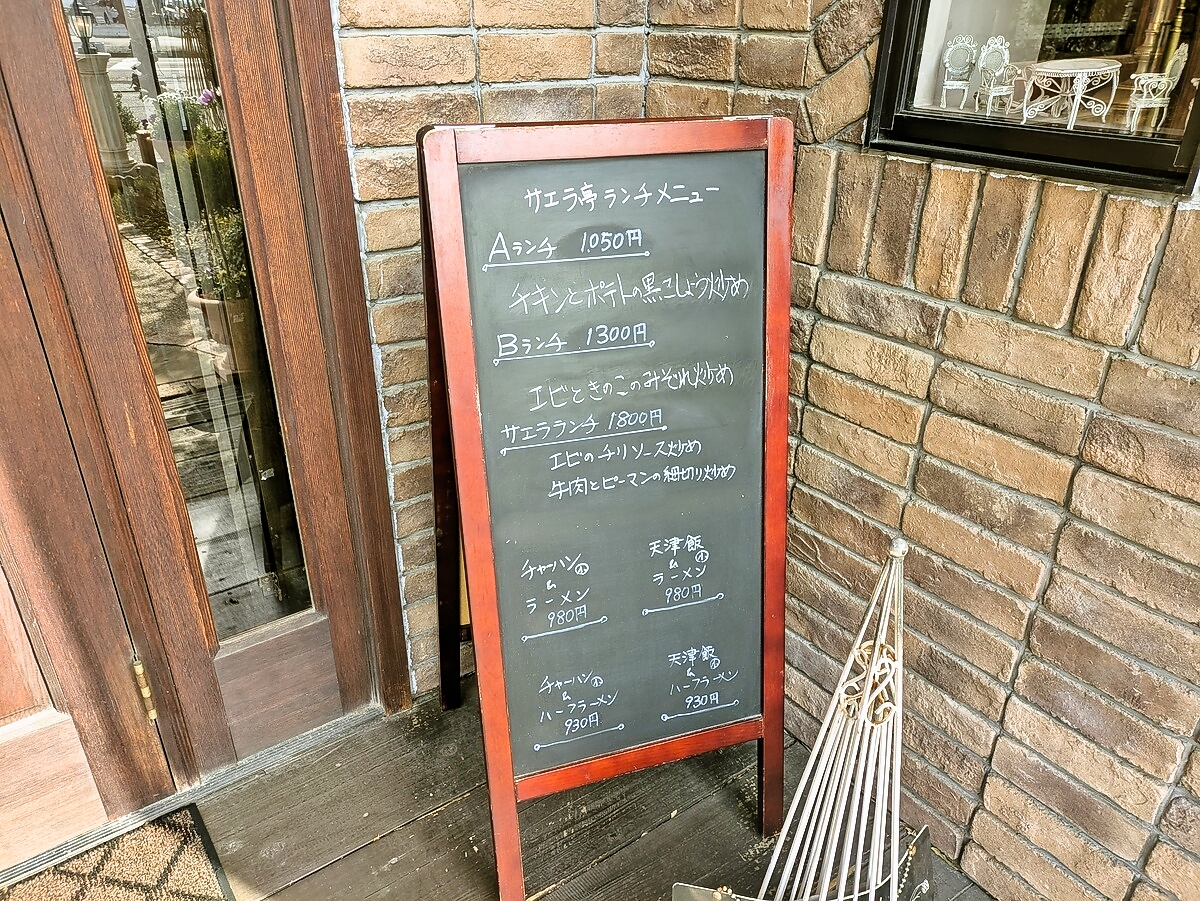 サエラ亭 ランチメニュー
Aランチ 1050円
チキンとポテトの黒こしょう炒め
Bランチ 1300円
エビときのこのみぞれ炒め
サエラランチ 1800円
エビのチリソース炒め
牛肉とピーマンの細切り炒め
チャーハン小
&
ラーメン
980円
天津飯小
&
ラーメン
980円
チャーハン小
&
ハーフラーメン
930円
天津飯小
&
ハーフラーメン
930円